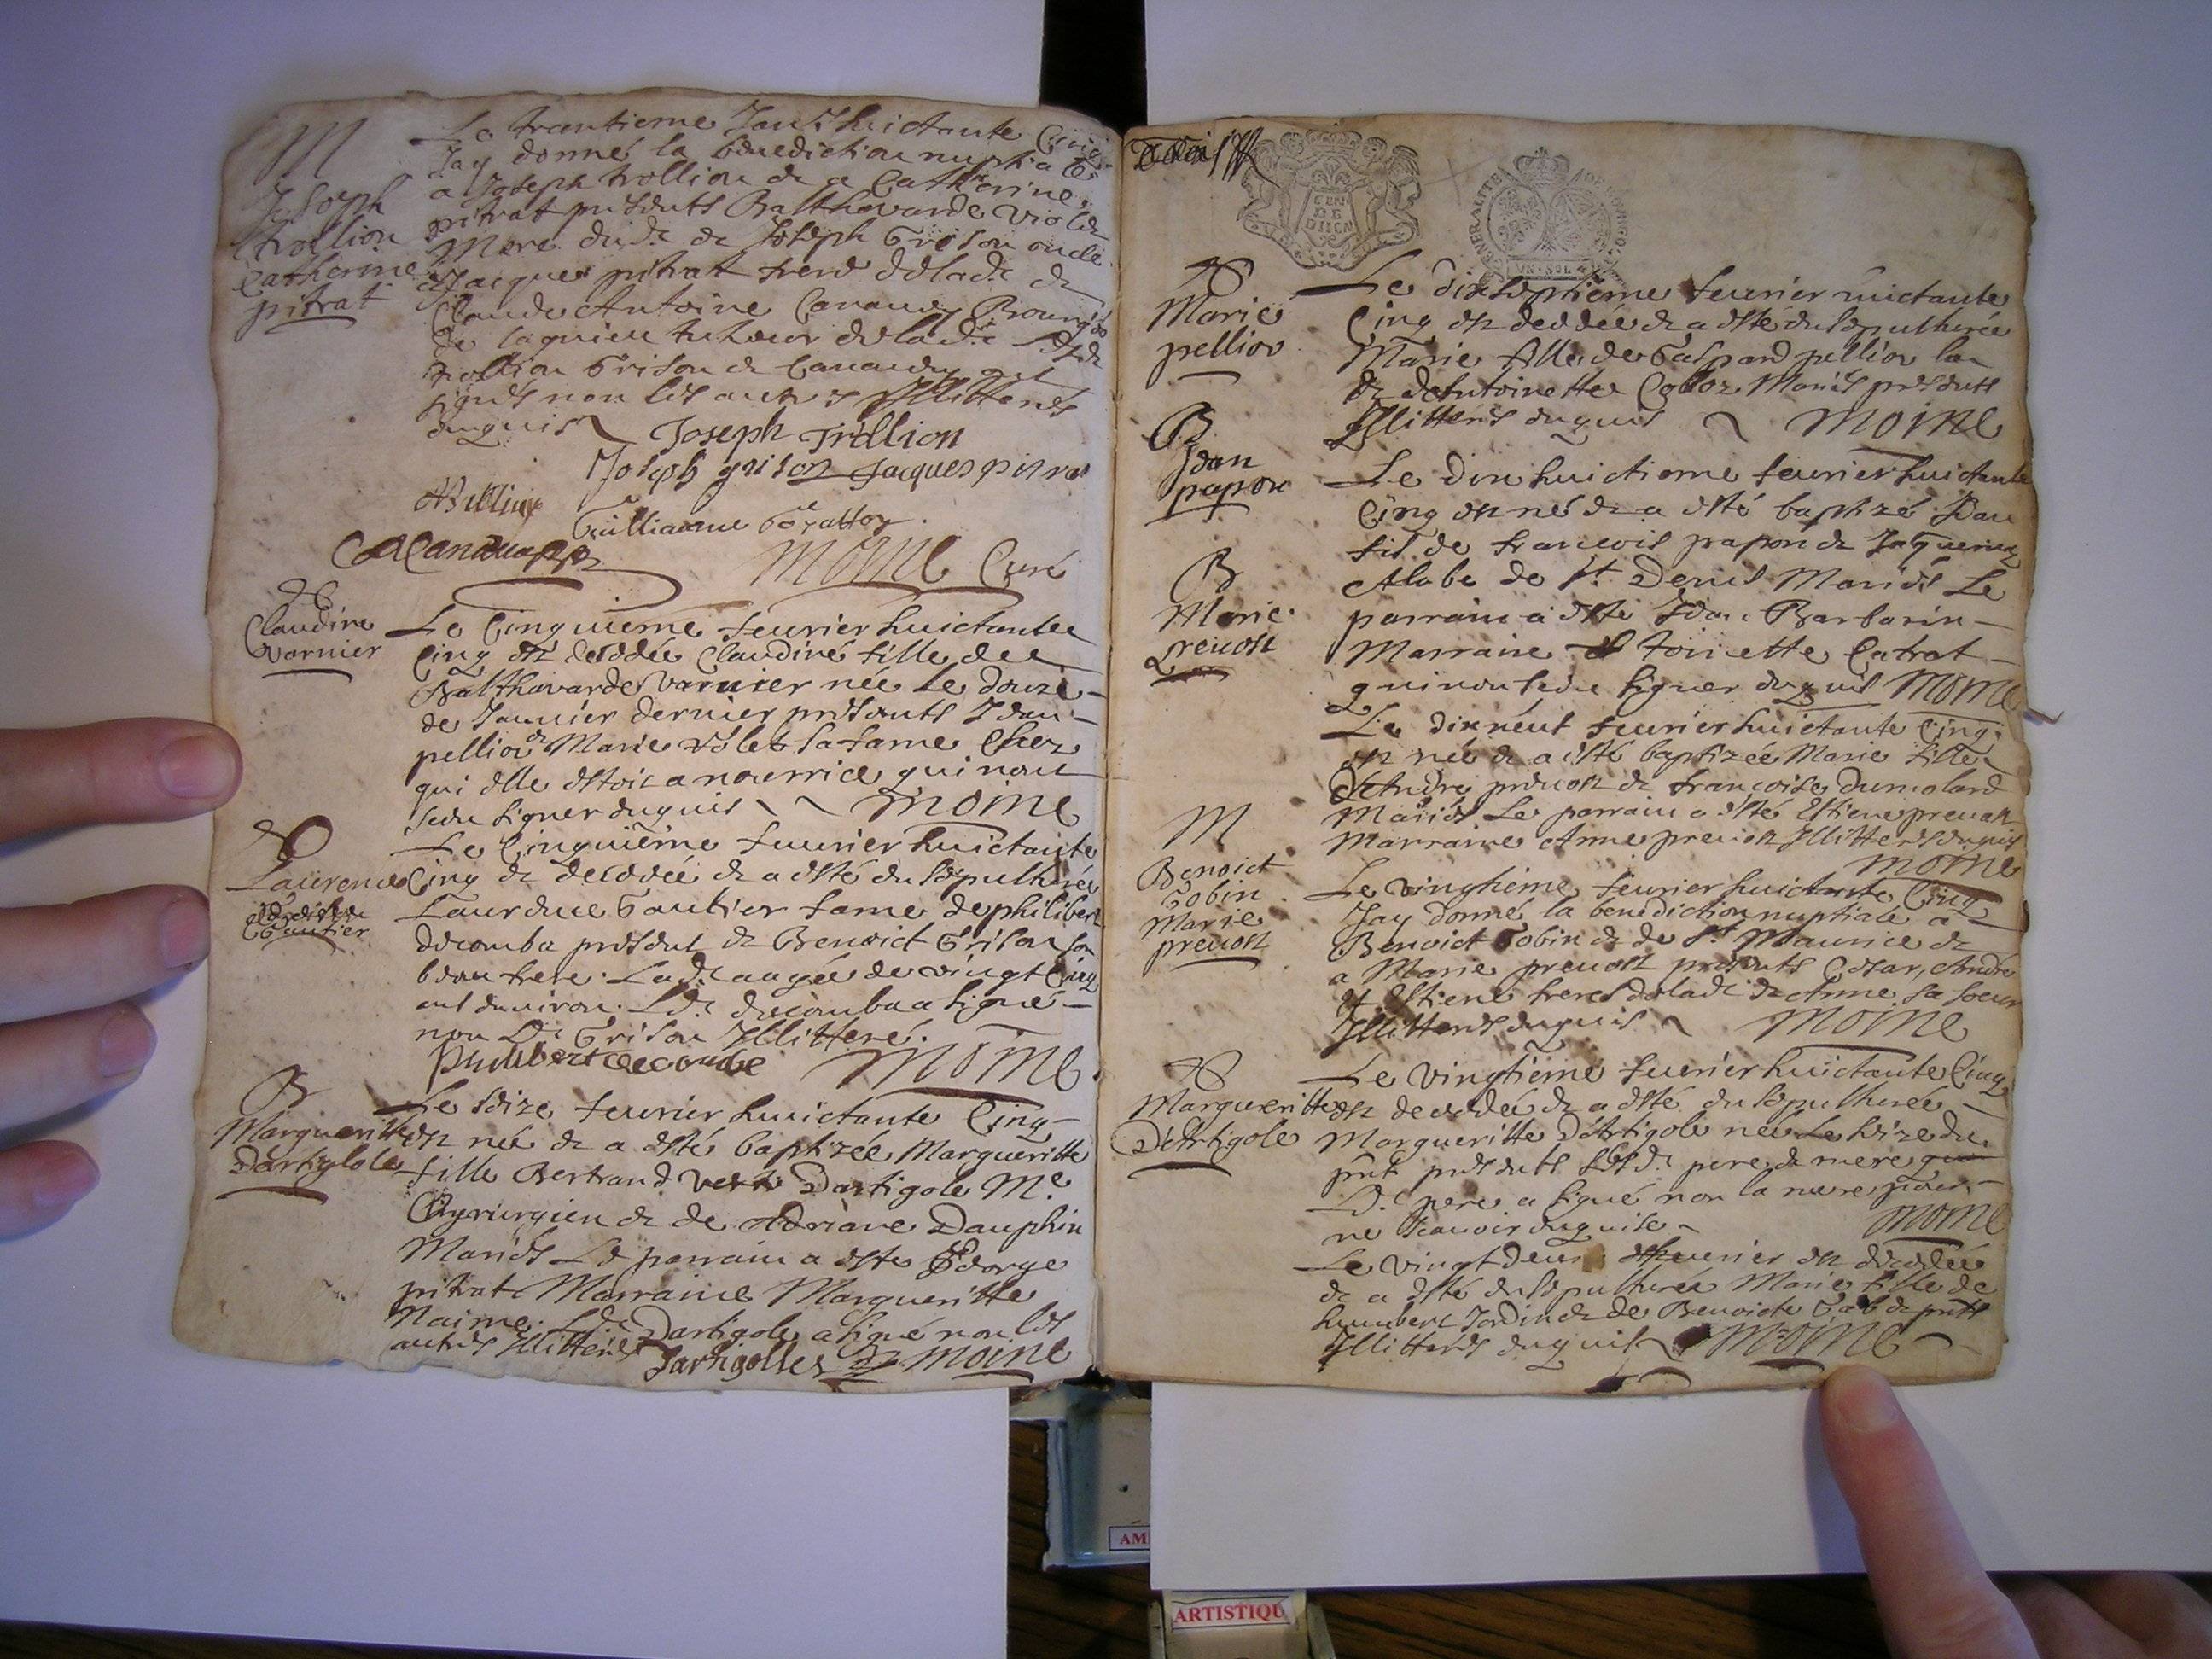 M
Joseph
trollion
Catherine
pitrat
Le trantieme Janr huictante Cinq
Jay donné la benediction nuptiale
a Joseph trollion & a Catherine
pitrat presents Balthazarde violet
Mere dud. & Joseph Grison oncle
Jacques pitrat frere de lad. &
Claude Antoine Canaud Bourgeois
de lagnieu tuteur de lad.
trollion Grison & Canaud ont
signés non les autres Illitterés
enquis
Joseph Trollion
Joseph grison Jacques pitra
Guilliaume
Moine Curé
Claudine
varnier
Le Cinquieme feurier huictante
Cinq est decedée Claudine fille de
Balthazarde varnier née Le douze
de Januier dernier presents Jean
pellion & Marie violet sa fame Chez
qui elle estoit a nourrice qui nont
sceu signer enquis Moine
Laurence
Gautier
Le Cinquième feurier huictante
Cinq & decedée & a esté ensepulturée
Laurence Gautier fame de philibert
decomba present & Benoict Grison son
beau frere. Lad. aagée de vingt Cinq
ans enuiron. Led. decomba a signé
non Led. Grison Illitteré.
philibert decombe Moine
B
Margueritte
Dartigole
Le seize feurier huictante Cinq
est née & a esté baptizée Margueritte
fille Bertrand Dartigole Me
Chyrurgien & de Adriane Dauphin
Mariés Le parrain a esté George
pitrat Marraine Margueritte
Naime. Led. Dartigole a signé non les
autres Illitterés
Jartigolles Moine
GENERALITE
UN·SOL
Marie
pellion
Le dixseptieme feurier huictante
Cinq est decedée & a esté ensepulturée
Marie fille de Gaspard pellion
& de Antoinette Coloz Mariés presents
Illitterés enquis Moine
B
Jean
papon
Le dix huictieme feurier huictante
Cinq est né & a esté baptizé Jean
fils de francois papon & Jaquema
Alabe de St Denis Mariés Le
parrain a esté Jean Barbarin
Marraine toinette Catrat
qui nont sceu signer enquis Moine
B
Marie
preuost
Le dixneuf feurier huictante Cinq
est née & a esté baptizée Marie fille
de Andre preuost & francoise Dumolard
Mariés Le parrain a esté Estiene preuost
Marraine Anne preuost Illitterés enquis
Moine
M
Benoict
Gobin
Marie
preuost
Le vingtieme feurier huictante Cinq
Jay donné la benediction nuptiale a
Benoict Gobin de St Maurice &
a Marie preuost presents Cesar, André
& Estiene freres de lad. & Anne sa soeur
Illitterés enquis Moine
Margueritte
D'Artigole
Le vingtieme feurier huictante Cinq
est decedée & a esté ensepulturée
Margueritte D'Artigole née Le seize du
pnt presents Lesd. pere & mere
Led. pere a signé non la mere pour
ne scauoir enquise Moine
Le vingt deux feurier est decedée
& a esté ensepulturée Marie fille de
humbert Jordin & de Benoicte Gab & pnts
Illitterés enquis Moine
ARTISTIQU